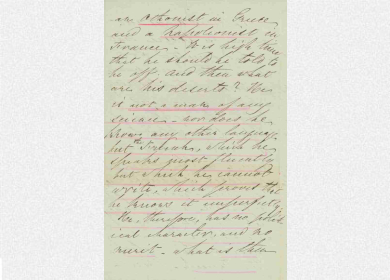 an Othonist in Greece
and a Napoleonist in
France - It is high time
that he should be told to
be off. And then what
are his deserts? He
is not a man of any
science - nor does he
know any other language
but the Turkish, which he
speaks most fluently
but which he cannot
write, which proves that
he knows it imperfectly.
He, therefore, has no polit-
ical character, and no
merit - what is then